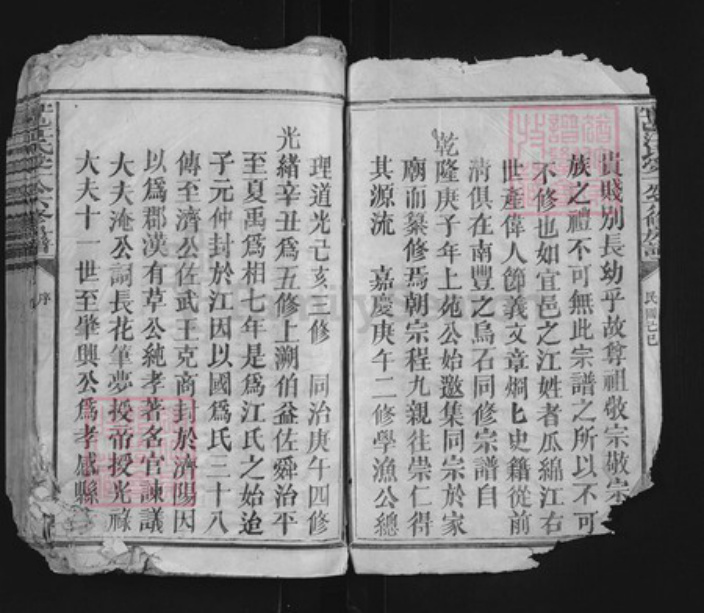 貴賤別長幼乎故尊祖敬宗敬宗
族之禮不可無此宗譜之所以不可
不修也如宜邑之江姓者瓜綿江右
世產偉人節義文章烱匕史籍從前
清俱在南豐之烏石同修宗譜自
乾隆庚子年上苑公始邀集同宗於家
廟而纂修焉朝宗程九親往崇仁得
其源流 嘉慶庚午二修學漁公總
理道光己亥三修 同治庚午四修
光緒辛丑爲五修上溯伯益佐舜治平
至夏禹爲相七年是爲江氏之始迨
子元仲封於江因以國爲氏三十八
傳至濟公佐武王克商封於濟陽因
以爲郡漢有草公純孝著名官諫議
大夫淹公詞長花筆夢授帝授光祿
大夫十一世至肇興公爲孝感縣
民國己巳
序